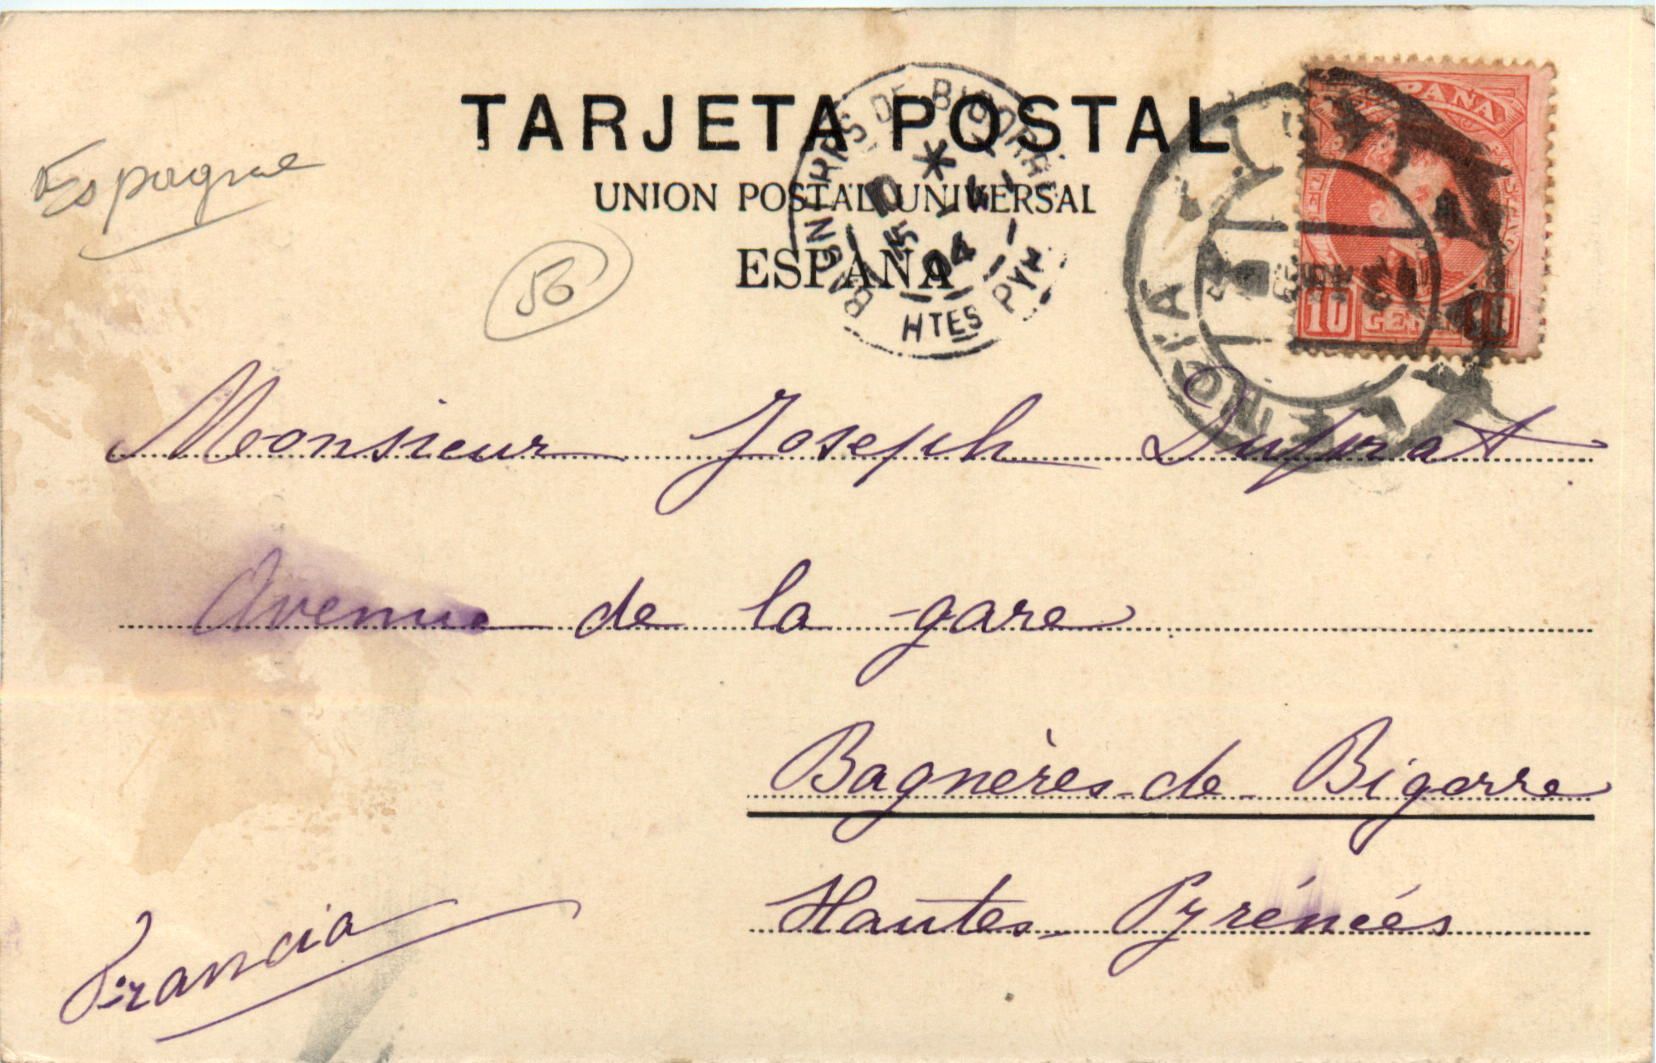 TARJETA POSTAL
UNION POSTAL UNIVERSAL
ESPAÑA
Espagne
50
BAGNÈRES DE BIGORRE
15
04
HTES PYR
ESPAÑA
10 10
Monsieur Joseph Duprat
Avenue de la gare
Bagnères-de-Bigorre
Hautes-Pyrénées
Francia